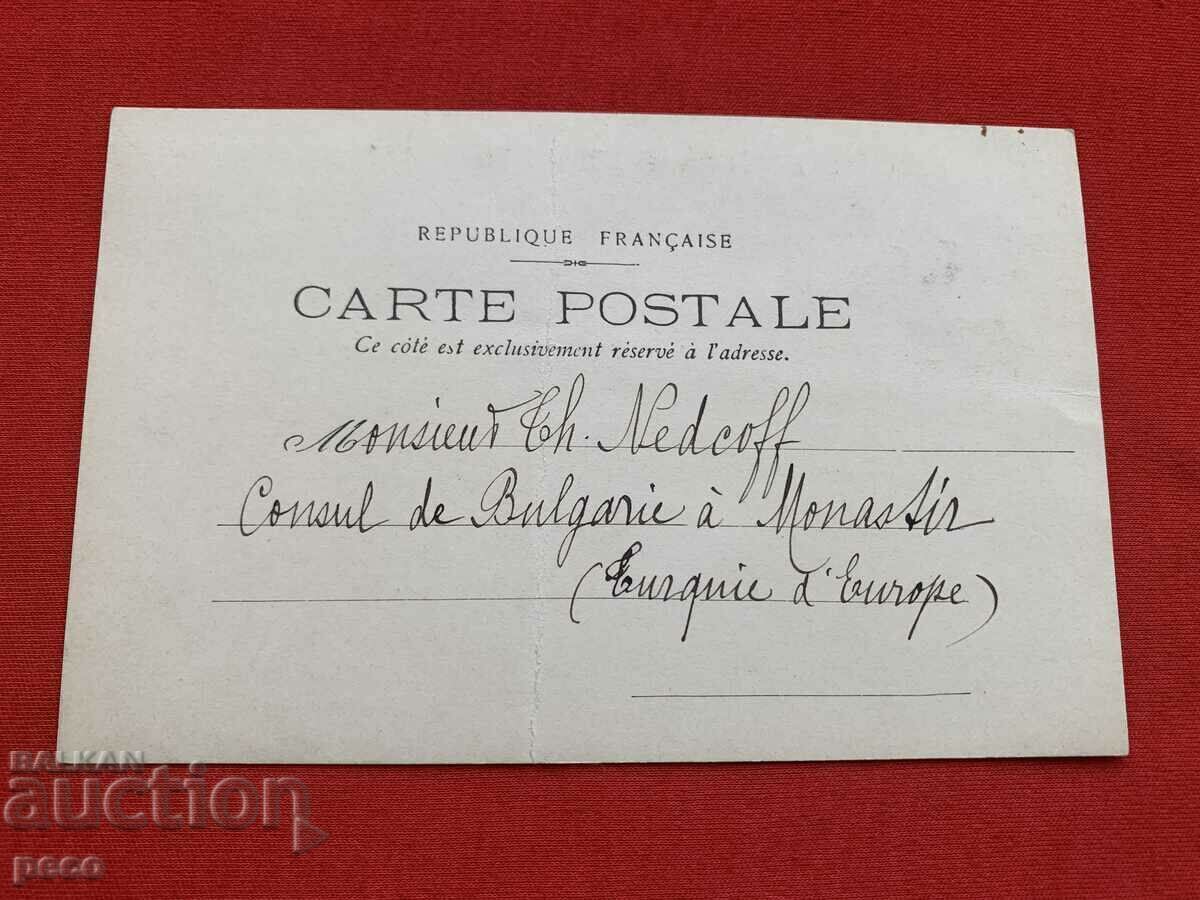 REPUBLIQUE FRANÇAISE
CARTE POSTALE
Ce côté est exclusivement réservé à l'adresse.
Monsieur Th. Nedcoff
Consul de Bulgarie à Monastir
(Turquie d'Europe)
BALKAN
auction
peco